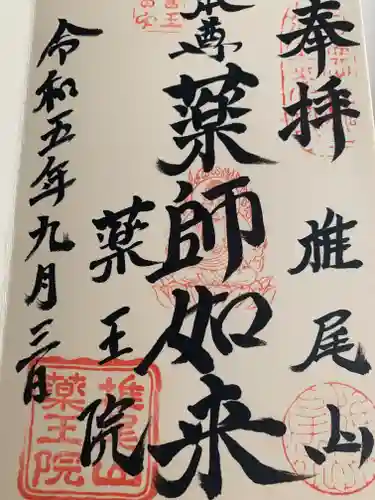 奉拝
雅尾山
本尊
薬師如来
薬王院
令和五年九月三日
雅尾山
薬王院